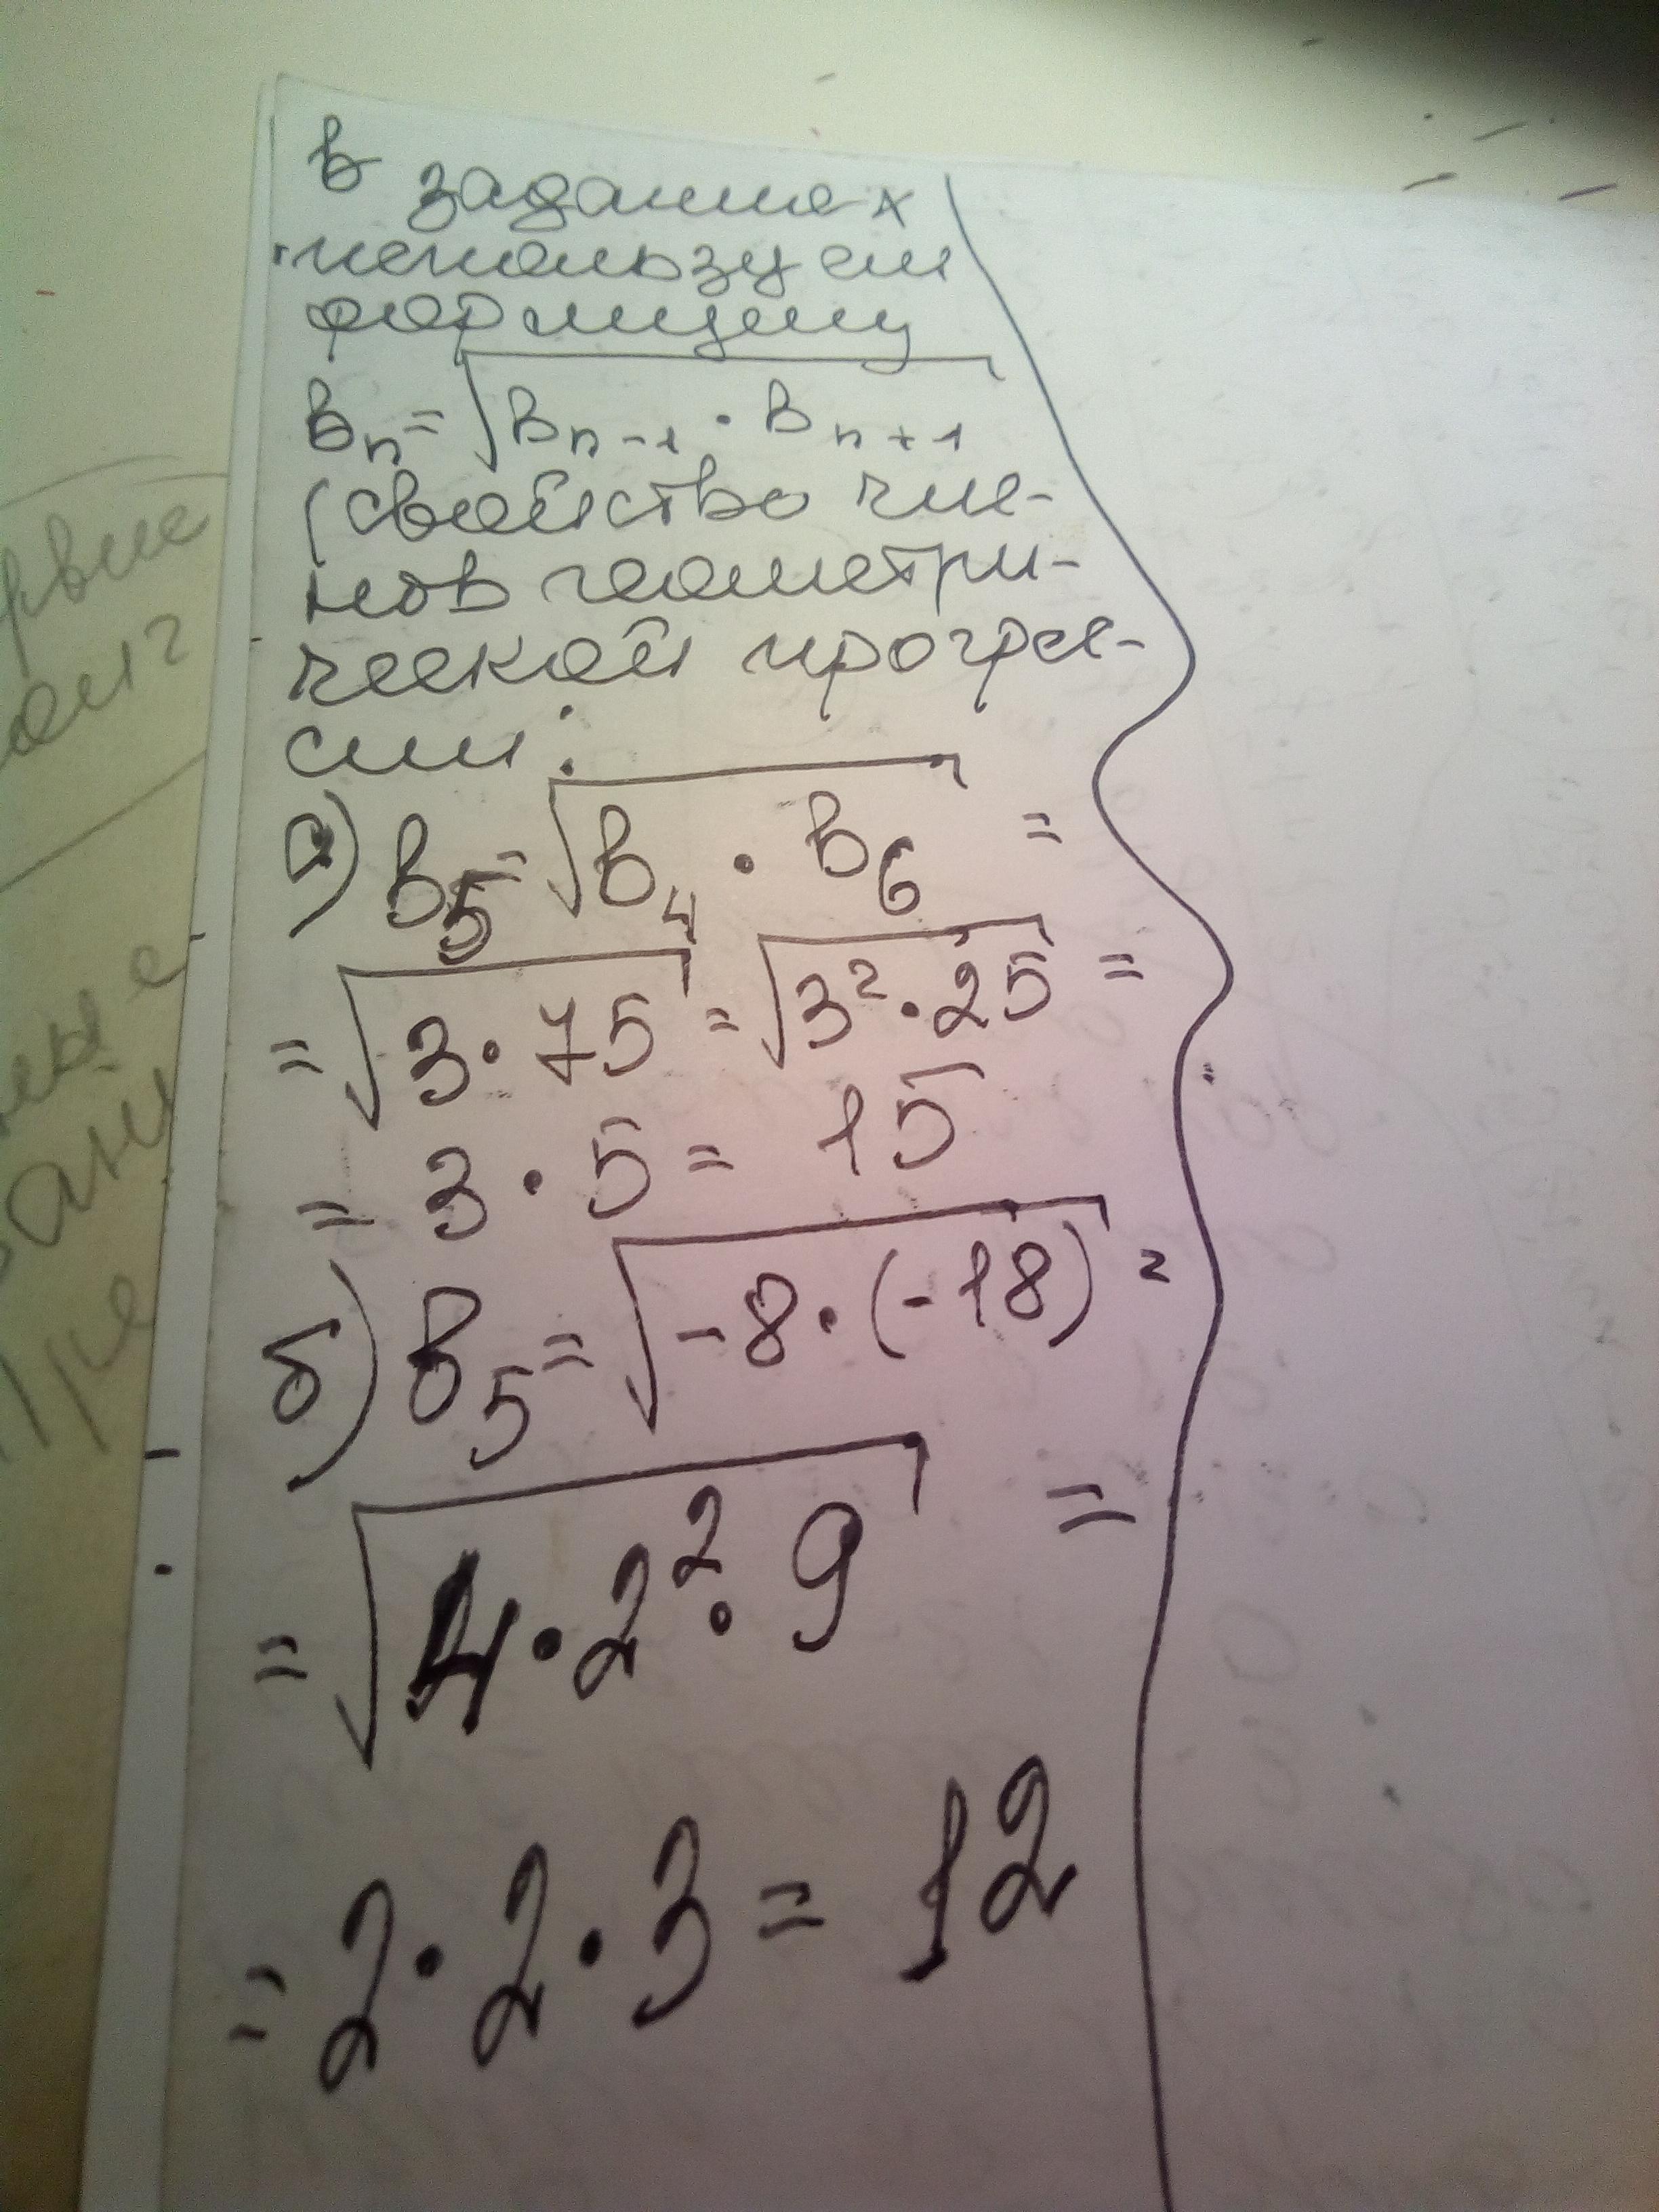 В заданиях
используем
формулу
Bn = √Bn-1 · Bn+1
(свойство чле-
нов геометри-
ческой прогрес-
сии:
а) B5 = √B4 · B6 =
= √3 · 75 = √3² · 25 =
= 3 · 5 = 15
б) B5 = √-8 · (-18) =
= √4 · 2² · 9 =
= 2 · 2 · 3 = 12